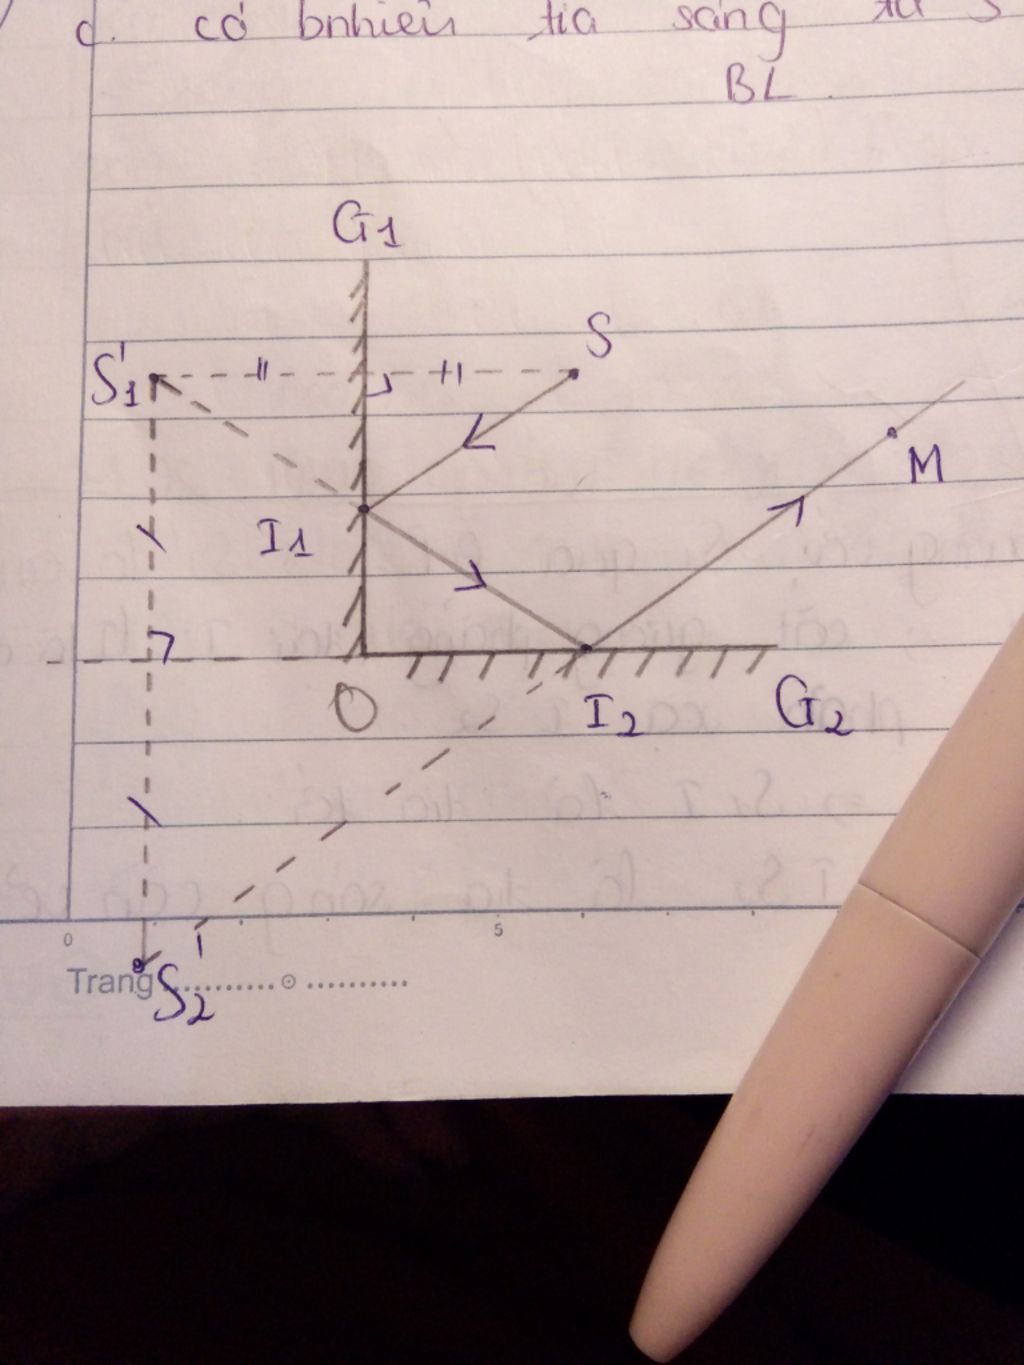 c. có bnhiêu tia sáng từ S
BL.
G1
S
S'1
M
I1
O
I2
G2
0
5
Trang
S'2